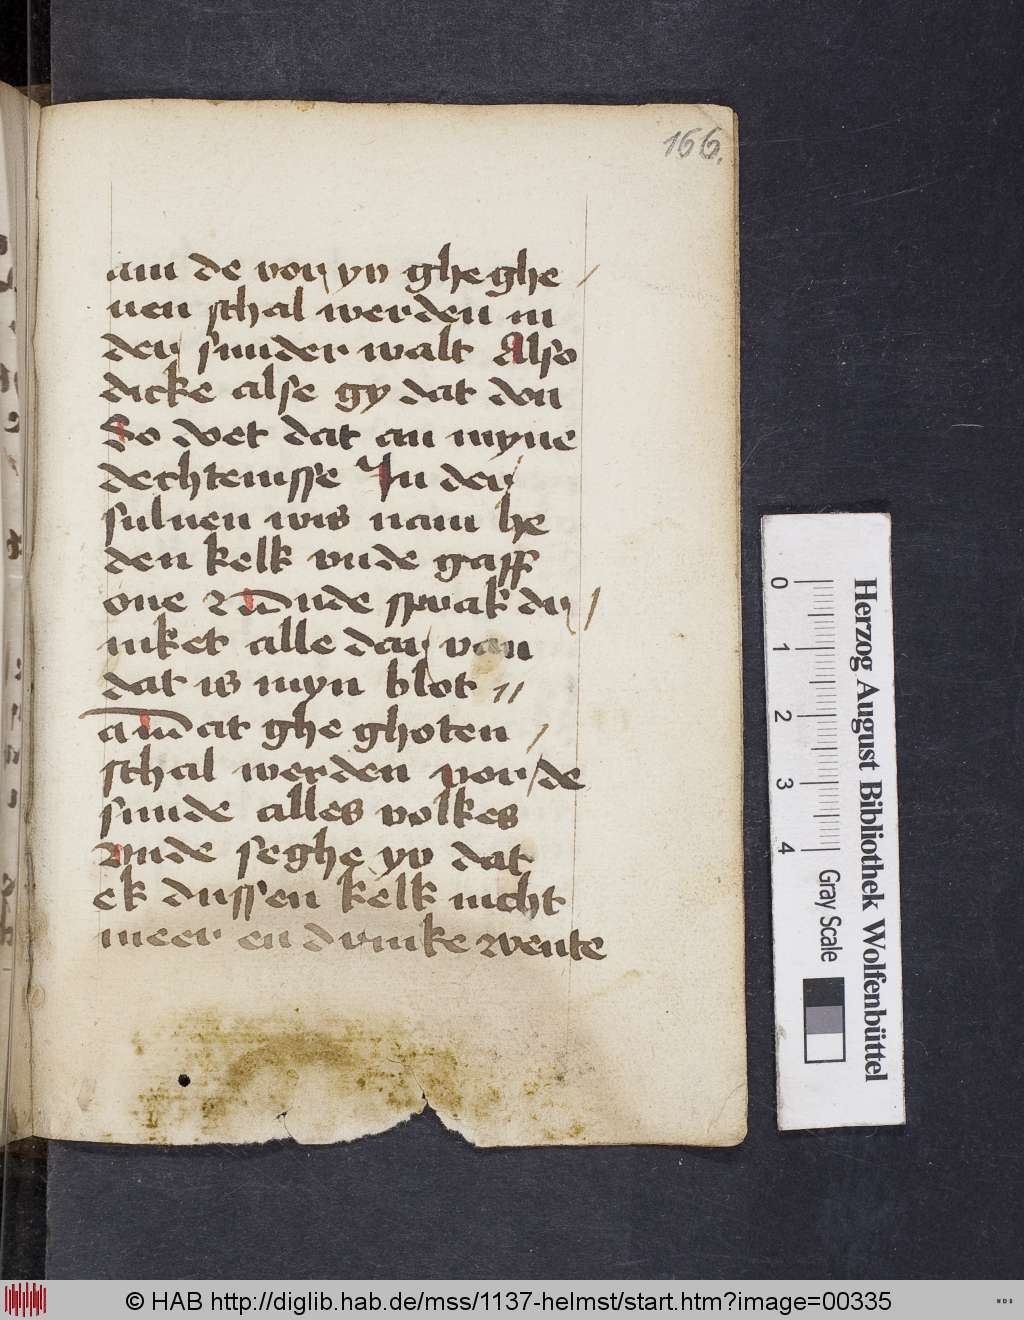 166.
am de vor yv ghe ghe /
uen schal werden in
der sunder walt Also
dicke alse gy dat don
So doet dat an myne
dechtenisse In der
suluen wis nam he
den kelk vnde gaff
one vnde sprak dri /
nket alle dar van
dat is myn blot //
dat ghe ghoten /
schal werden vor / de
sunde alles volkes
vnde seghe yv dat
ek dussen kelk nicht
meer en drinke wente
Herzog August Bibliothek Wolfenbüttel
0 1 2 3 4 Gray Scale
© HAB http://diglib.hab.de/mss/1137-helmst/start.htm?image=00335